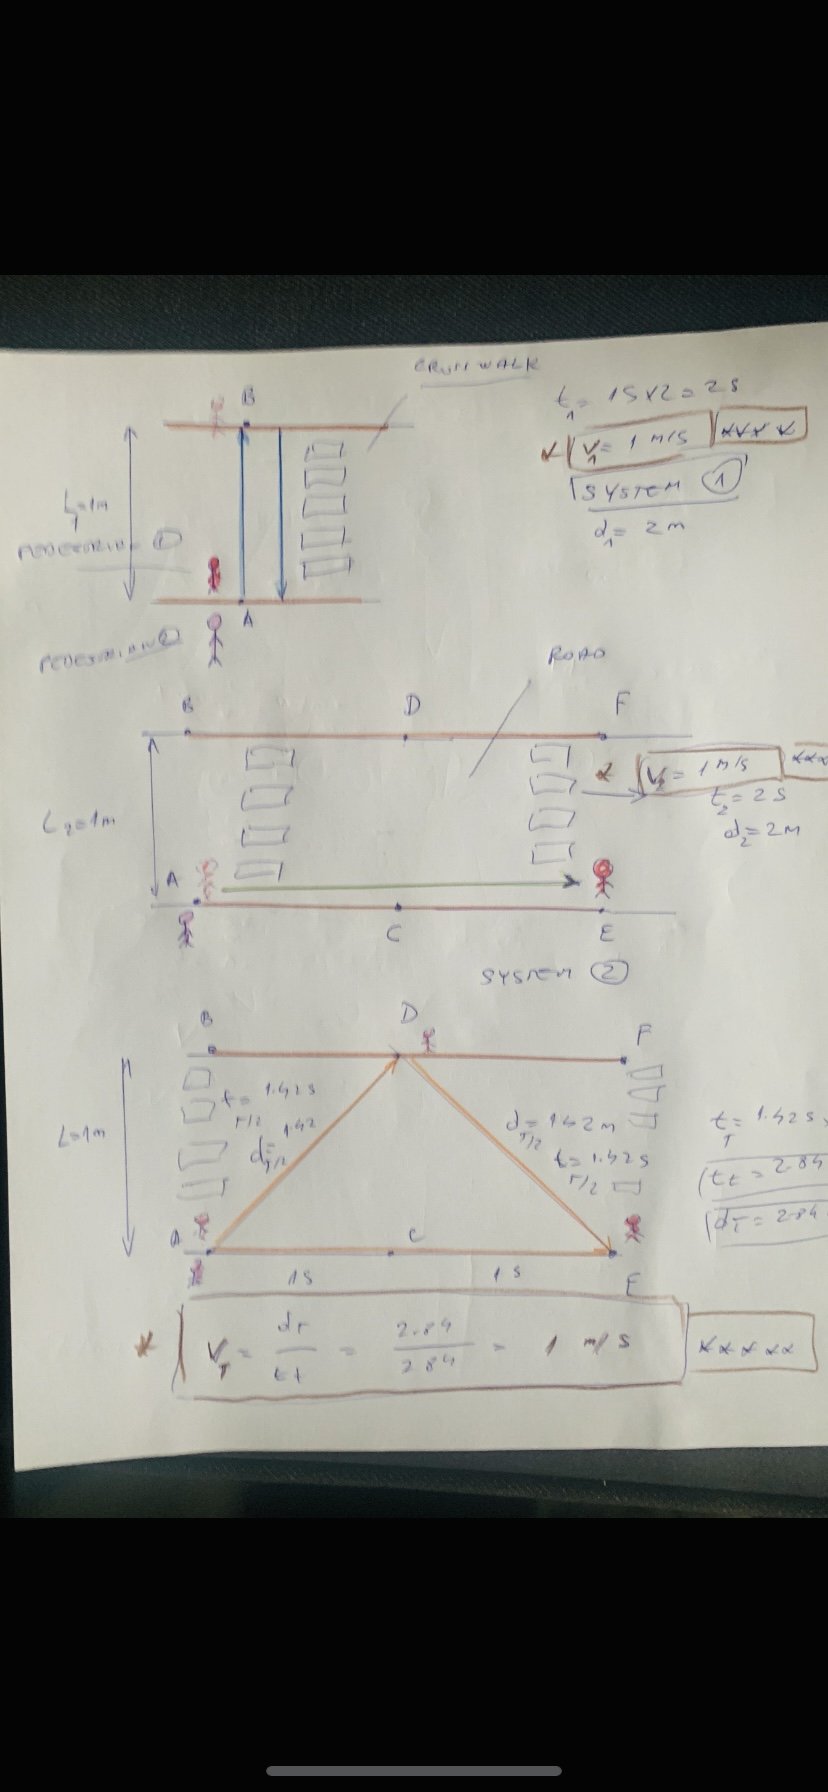 CROSSWALK
t₁ = 1S x 2 = 2 S
B
V₁ = 1 m/s
SYSTEM 1
L₁ = 1m
d₁ = 2 m
PEDESTRIAN 1
A
PEDESTRIAN 2
ROAD
B D F
V₂ = 1 m/s
t₂ = 2 S
L₂ = 1m
d₂ = 2 m
A
C E
SYSTEM 2
B D F
t T/2 = 1.42 s
d T/2 = 1.42
d T/2 = 1.42 m
L = 1m
t T/2 = 1.42 s
t T = 1.42 s
tt = 2.84
dT = 2.84
A C
1S 1S E
V T = dT / tt = 2.84 / 2.84 = 1 m/s